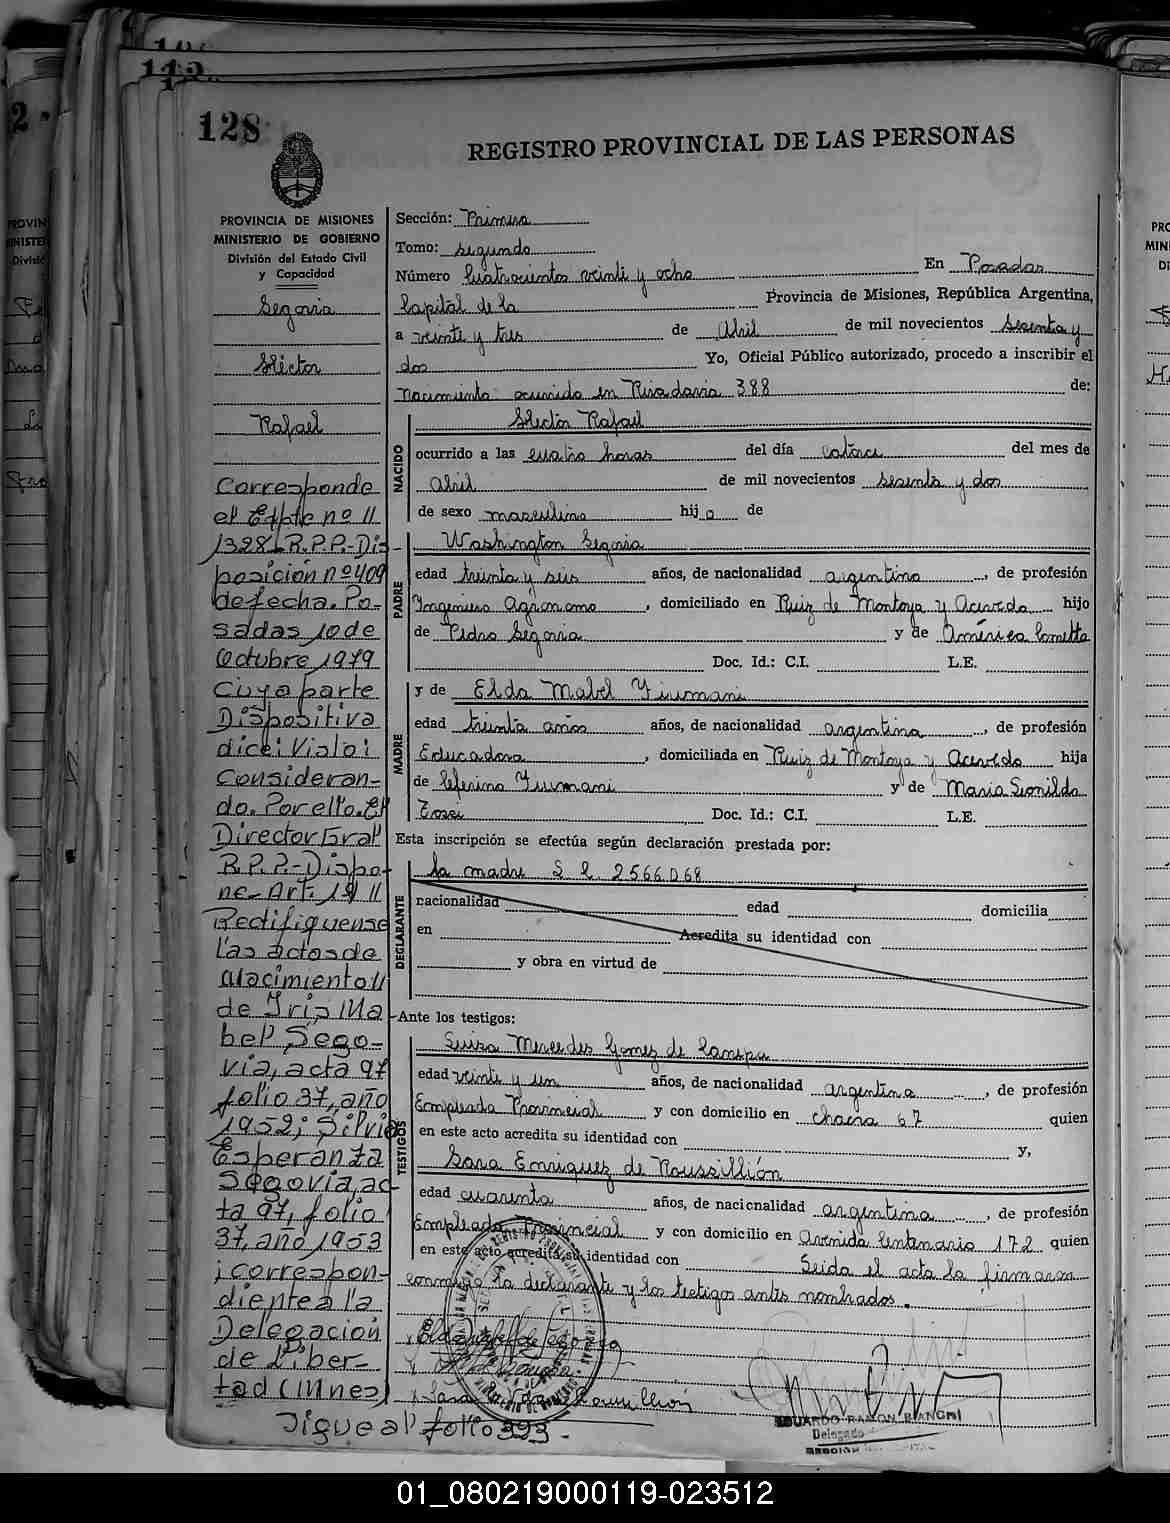 128
REGISTRO PROVINCIAL DE LAS PERSONAS
PROVINCIA DE MISIONES
MINISTERIO DE GOBIERNO
División del Estado Civil
y Capacidad
Segovia
Héctor
Rafael
Corresponde
el Expte nº 11
1328-R.P.P.-Dis-
posición nº 409
de fecha. Po-
sadas, 10 de
Octubre, 1979
Cuya parte
Dispositiva
dice: Visto:
Consideran-
do. Por ello. El
Director Gral
R.P.P.- Dispo-
ne- Art. 1º 11
Rectifiquense
las actos de
Nacimiento 11
de Iris Ma-
bel Sego-
via, acta 97
folio 37, año
1952; Silvia
Esperanza
Segovia, ac-
ta 97, folio
37, año 1953
; correspon-
diente a la
Delegación
de Liber-
tad (Mnes)
Sigue al folio 393-
Sección: Primera
Tomo: segundo
Número Cuatrocientos veinti y ocho En Posadas
Capital de la Provincia de Misiones, República Argentina,
a veinte y tres de Abril de mil novecientos sesenta y
dos Yo, Oficial Público autorizado, procedo a inscribir el
nacimiento ocurrido en Rivadavia 388 de:
NACIDO
Héctor Rafael
ocurrido a las cuatro horas del día catorce del mes de
Abril de mil novecientos sesenta y dos
de sexo masculino hijo de
PADRE
Washington Segovia
edad treinta y seis años, de nacionalidad argentino, de profesión
Ingeniero Agronomo, domiciliado en Ruiz de Montoya y Acevedo hijo
de Pedro Segovia y de América Cometto
Doc. Id.: C.I. L.E.
MADRE
y de Elda Mabel
edad treinta años años, de nacionalidad argentina, de profesión
Educadora, domiciliada en Ruiz de Montoya y Acevedo hija
de Ceferino y de María Leonilda
Tossi Doc. Id.: C.I. L.E.
Esta inscripción se efectúa según declaración prestada por:
DECLARANTE
la madre 2566068
nacionalidad edad domicilia
en Acredita su identidad con
y obra en virtud de
Ante los testigos:
TESTIGOS
Luisa Mercedes Gomez de
edad veinte y un años, de nacionalidad argentina, de profesión
Empleada Provincial y con domicilio en chacra 67 quien
en este acto acredita su identidad con y,
Sara Enriquez de Roussillión
edad cuarenta años, de nacionalidad argentina, de profesión
Empleada Provincial y con domicilio en Avenida Centenario 172 quien
en este acto acredita su identidad con Leida el acta la firmaron
conmigo la declarante y los testigos antes nombrados.
EDUARDO RAMON BIANCHI
Delegado
01_080219000119-023512